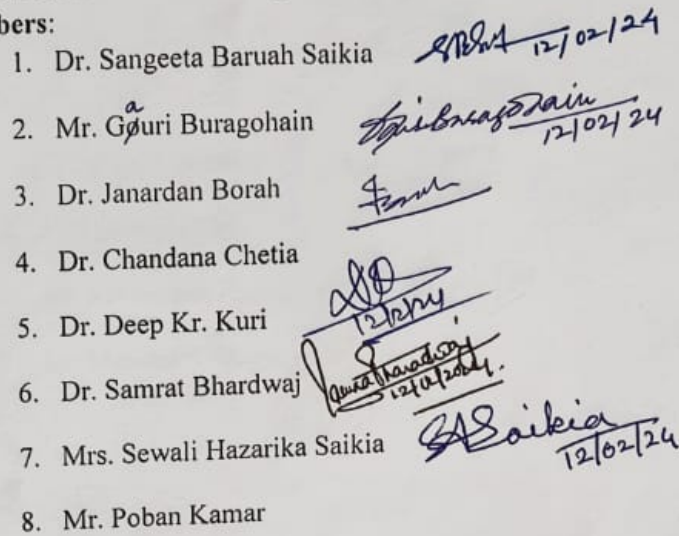 bers:
1. Dr. Sangeeta Baruah Saikia 12/02/24
2. Mr. Gauri Buragohain 12/02/24
3. Dr. Janardan Borah
4. Dr. Chandana Chetia
5. Dr. Deep Kr. Kuri 12/2/24
6. Dr. Samrat Bhardwaj
7. Mrs. Sewali Hazarika Saikia SHSaikia 12/02/24
8. Mr. Poban Kamar